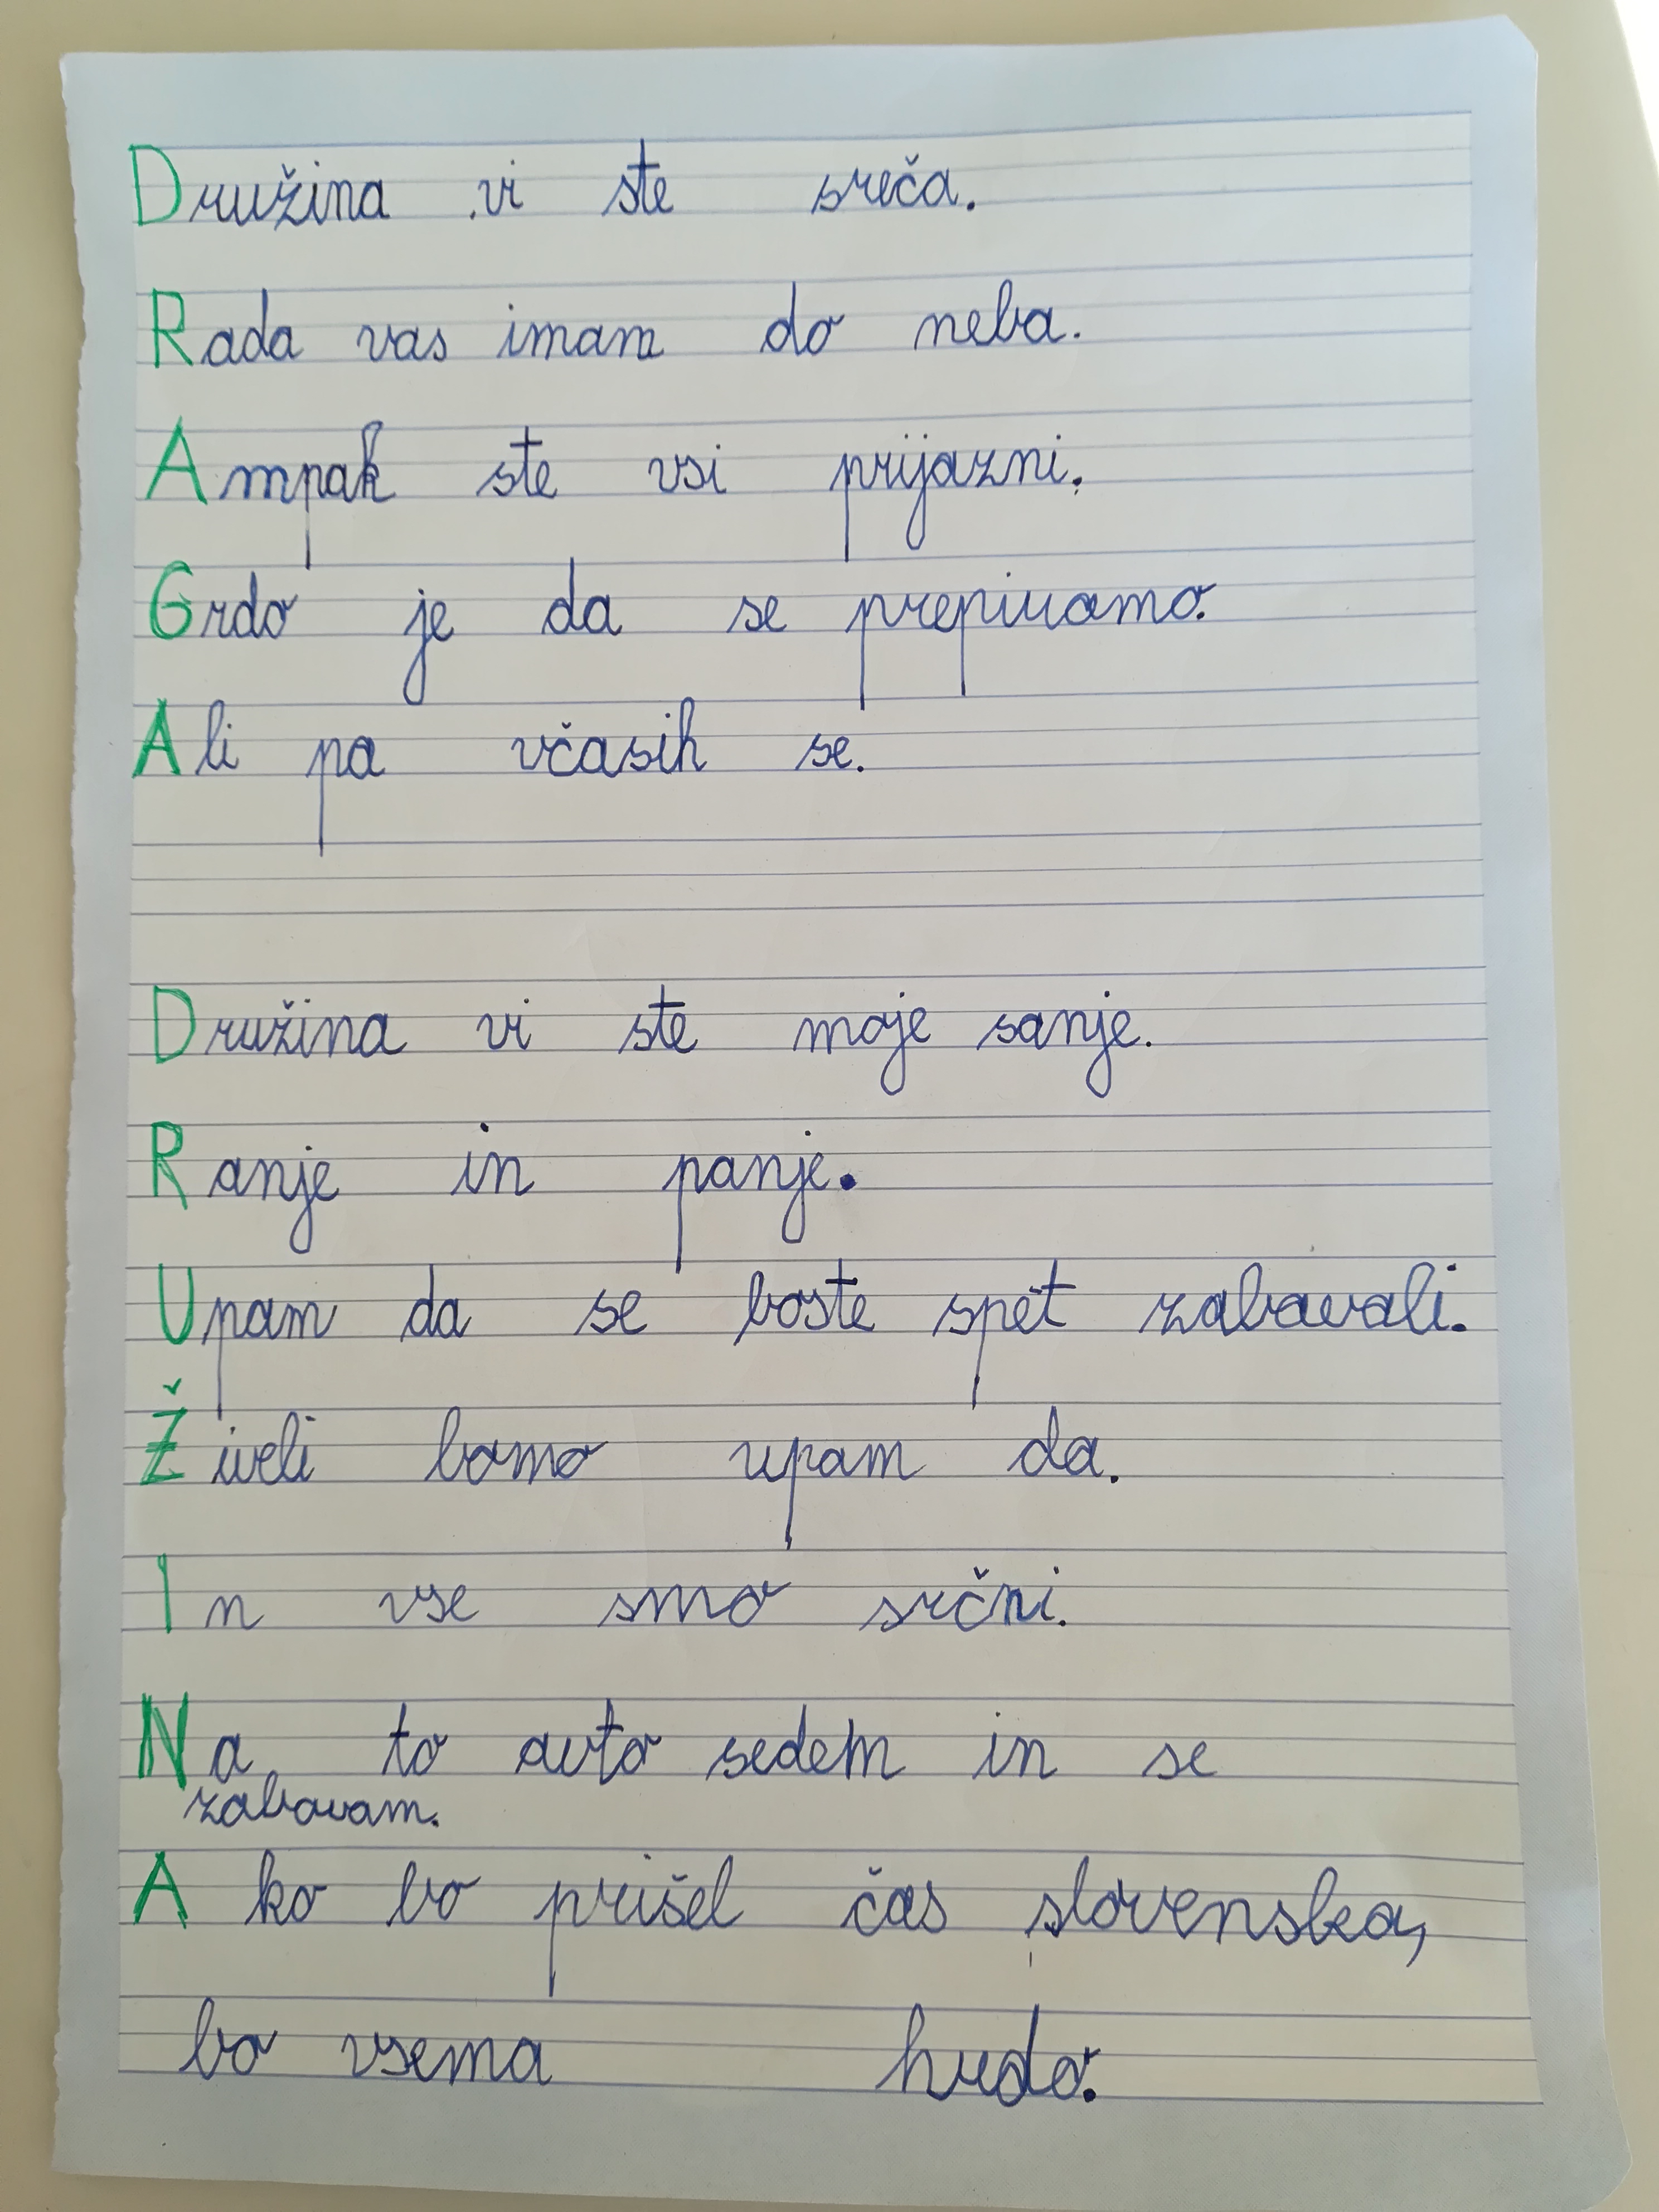 Družina vi ste sreča.
Rada vas imam do neba.
Ampak ste vsi prijazni.
Grdo je da se prepiramo.
Ali pa včasih se.
Družina vi ste moje sanje.
Ranje in panje.
Upam da se boste spet zabavali.
Živeli bomo upam da.
In vse smo srčni.
Na to avto sedem in se
zabavam.
Ako bo prišel čas slovenska,
bo vsema hudo.